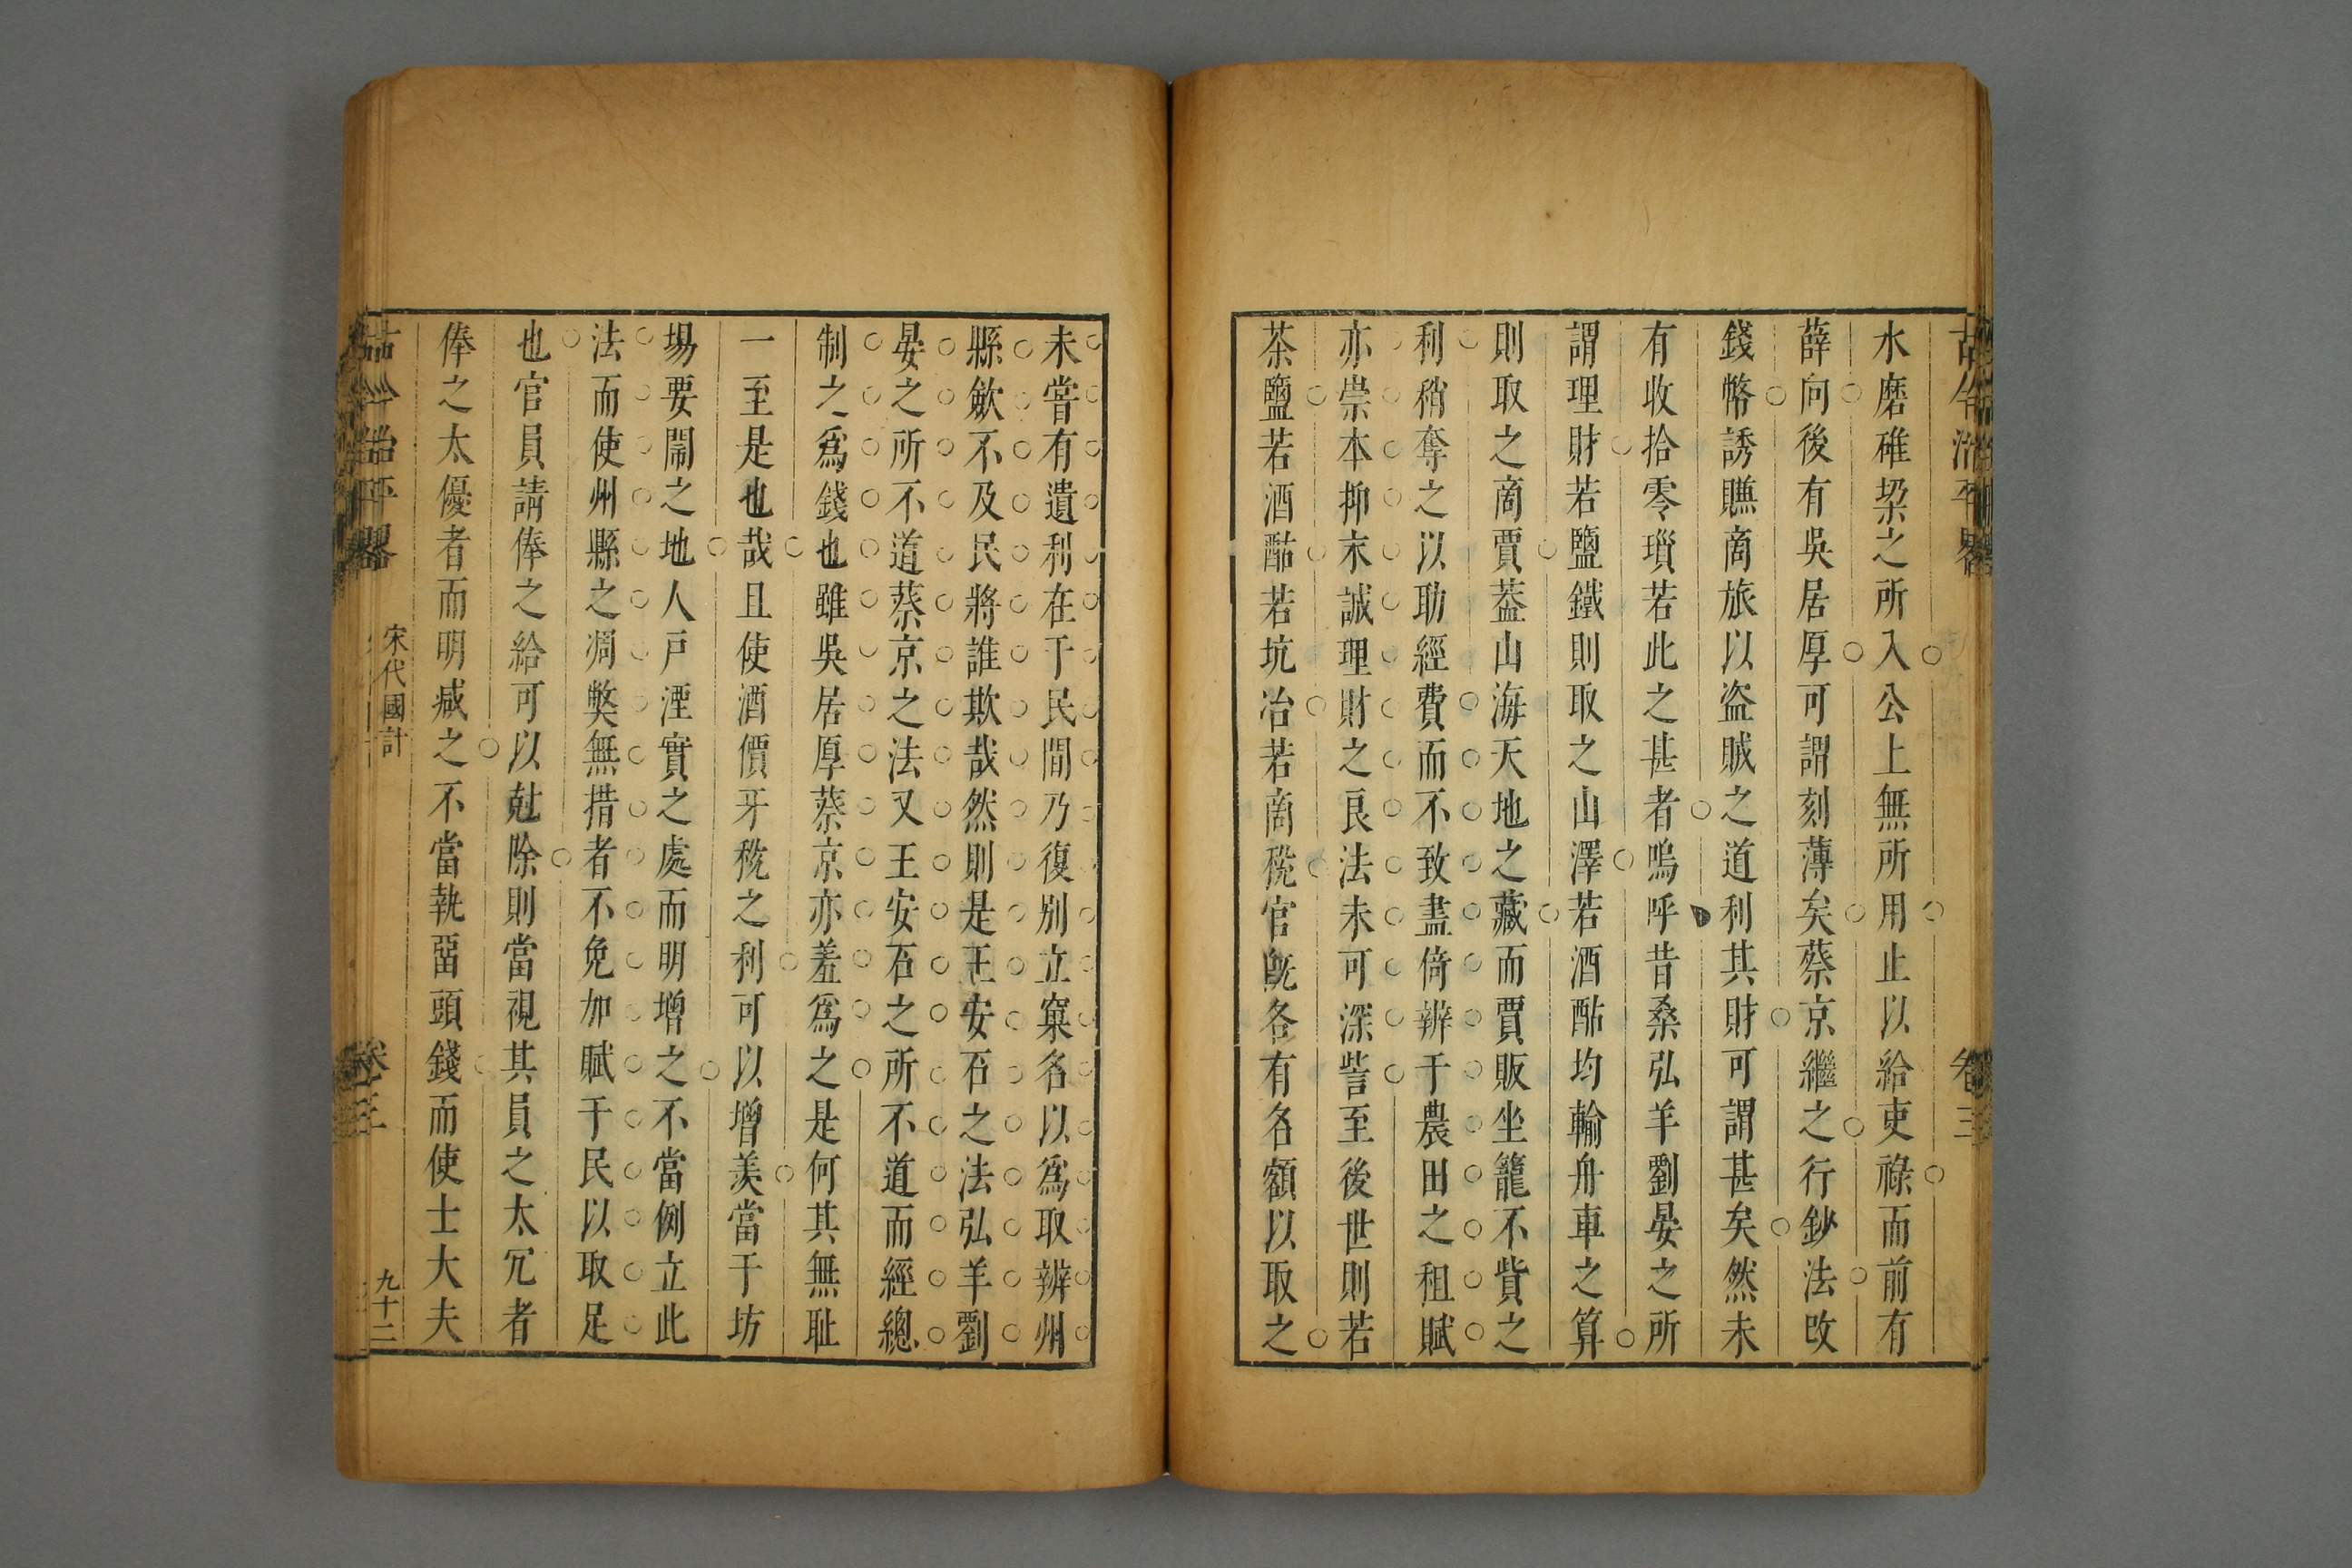 水磨碓㮚之所入公上無所用止以給吏祿而前有
薛向後有吳居厚可謂刻薄矣蔡京繼之行鈔法改
錢幣誘賺商旅以盜賊之道利其財可謂甚矣然未
有收拾零瑣若此之甚者嗚呼昔桑弘羊劉晏之所
謂理財若鹽鐵則取之山澤若酒酤均輸舟車之算
則取之商賈葢山海天地之藏而賈販坐籠不貲之
利稍奪之以助經費而不致盡倚辦于農田之租賦
亦崇本抑末誠理財之良法未可深訾至後世則若
茶鹽若酒酤若坑冶若商稅官旣各有各額以取之
未嘗有遺利在于民間乃復別立窠名以爲取辦州
縣歛不及民將誰欺哉然則是王安石之法弘羊劉
晏之所不道蔡京之法又王安石之所不道而經總
制之爲錢也雖吳居厚蔡京亦羞爲之是何其無耻
一至是也哉且使酒價牙稅之利可以增羨當于坊
塲要閙之地人戸湮實之處而明增之不當例立此
法而使州縣之凋弊無措者不免加賦于民以取足
也官員請俸之給可以尅除則當視其員之太冗者
俸之太優者而明减之不當執畱頭錢而使士大夫
古今治平畧
宋代國計
卷三
九十二